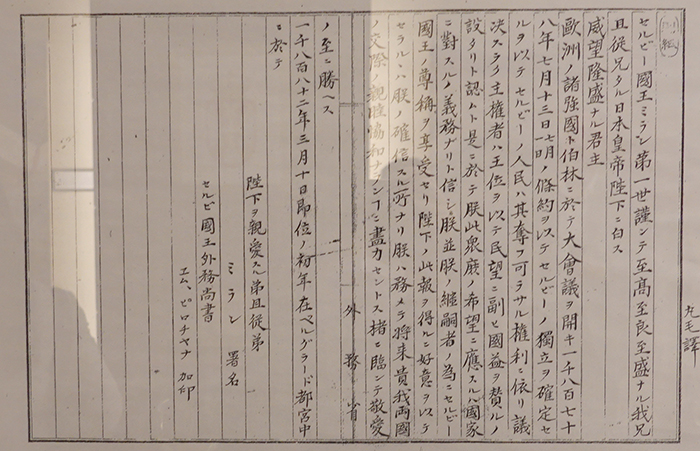 セルビー國王ミラン第一世謹ンテ至髙至良至盛ナル我兄
且従兄タル日本皇帝陛下ニ白ス
威望隆盛ナル君主
歐洲ノ諸強國ト伯林ニ於テ大會議ヲ開キ一千八百七十
八年七月十三日七明ノ條約ヲ以テセルビーノ獨立ヲ確定セ
ルヲ以テセルビーノ人民ハ其奪フ可ラサル權利ニ依リ議
决スラク主權者ハ王位ヲ以テ民望ニ副ヒ國益ヲ賛ルノ
設タリト認ムト是ニ於テ朕此衆庶ノ希望ニ應スルハ國家
ニ對スルノ義務ナリト信シ朕並朕ノ継嗣者ノ為ニセルビー
國王ノ尊稱ヲ享受セリ陛下ノ此報ヲ得ルニ好意ヲ以テ
セラルヽハ朕ノ確信スル所ナリ朕ハ務メテ将来貴我両國
ノ交際ノ親睦協和ナランヿニ盡力セントス楮ニ臨ンテ敬愛
外務省
ノ至ニ勝ヘス
一千八百八十二年三月十日即位ノ初年在ベルグラード都宮中
ニ於テ
陛下ヲ親愛スル弟且従弟
ミラン 署名
セルビ國王外務尚書
エム、ピロチヤナ 加印
九毛譯